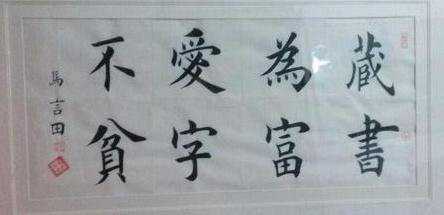 蔵書
為富
愛字
不貧
馬言田